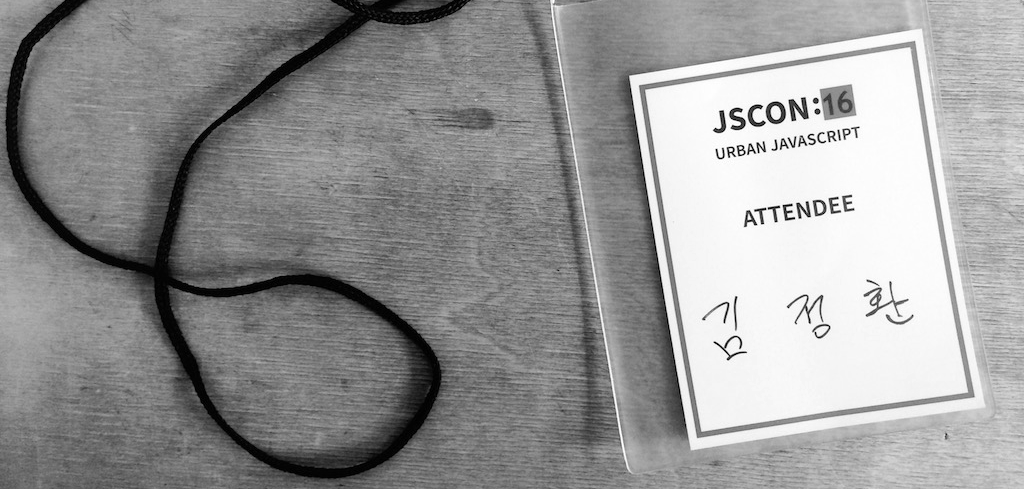 JSCON:16
URBAN JAVASCRIPT
ATTENDEE
김 정 환